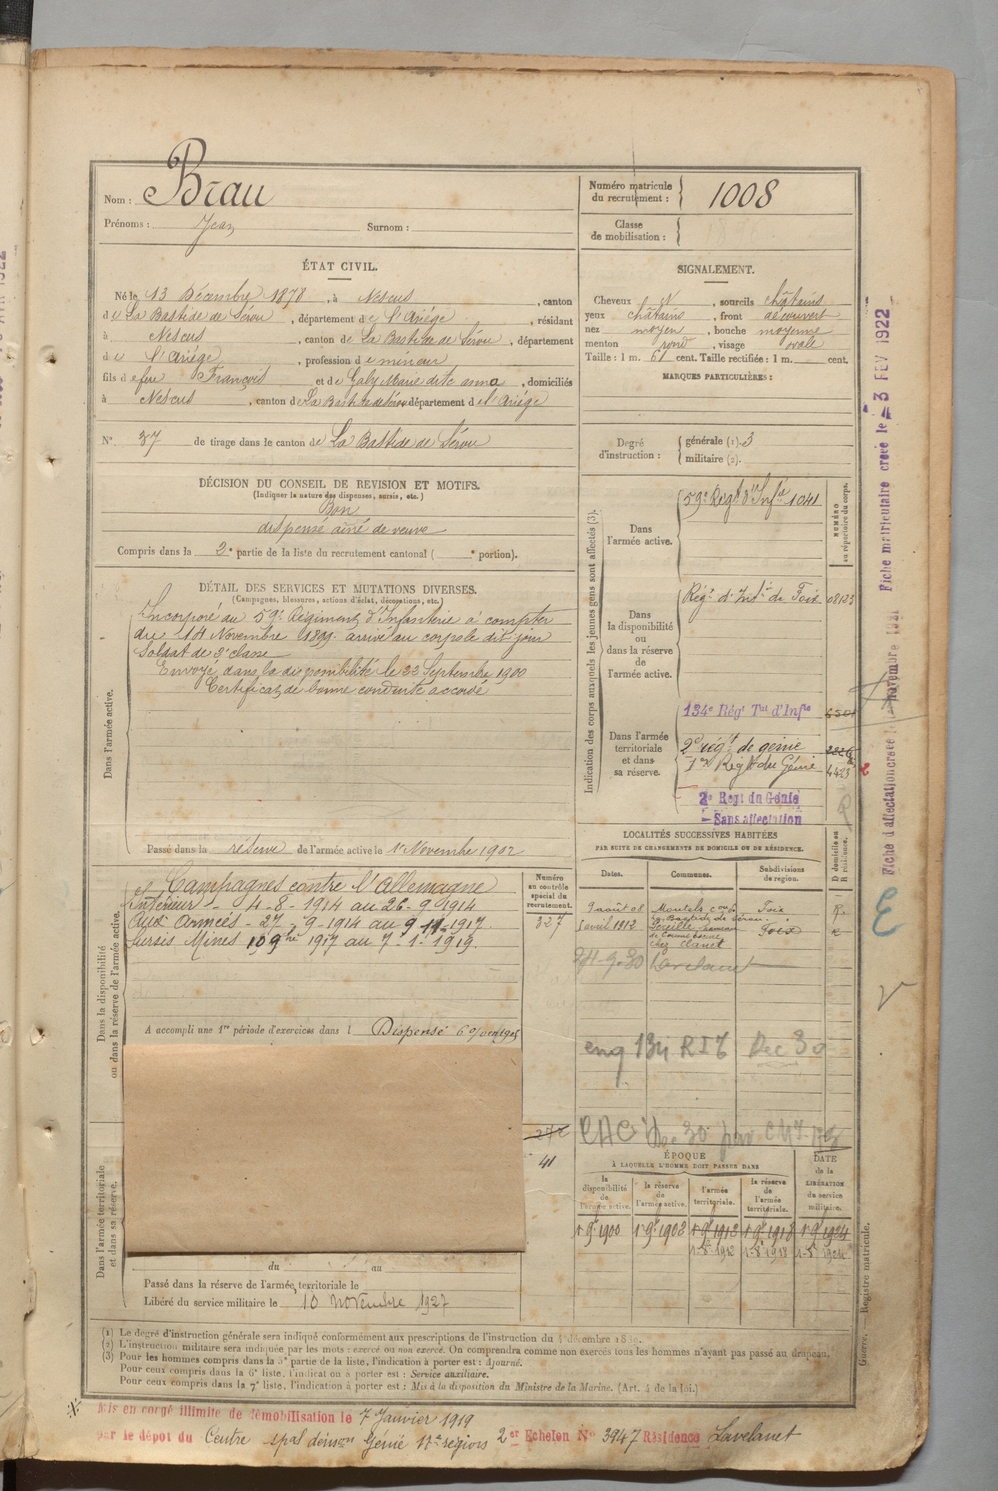 Nom : Brau
Prénoms : Jean Surnom :
Numéro matricule
du recrutement : 1008
Classe
de mobilisation :
ÉTAT CIVIL.
Né le 13 Décembre 1878, à Nescus, canton
de La Bastide de Sérou, département de l'Ariége, résidant
à Nescus, canton de La Bastide de Sérou, département
de l'Ariége, profession de mineur
fils de feu François et de Galy Marie dite anna, domiciliés
à Nescus, canton de La Bastide de Sérou département de l'Ariége
N° 37 de tirage dans le canton de La Bastide de Sérou
SIGNALEMENT.
Cheveux et, sourcils châtains
yeux châtains, front découvert
nez moyen, bouche moyenne
menton rond, visage ovale
Taille : 1 m. 61 cent. Taille rectifiée : 1 m. cent.
MARQUES PARTICULIÈRES :
Degré
d'instruction :
générale (1). 3
militaire (2).
DÉCISION DU CONSEIL DE REVISION ET MOTIFS.
(Indiquer la nature des dispenses, sursis, etc.)
Bon
dispensé aîné de veuve
Compris dans la 2e partie de la liste du recrutement cantonal ( e portion).
DÉTAIL DES SERVICES ET MUTATIONS DIVERSES.
(Campagnes, blessures, actions d'éclat, décorations, etc.)
Dans l'armée active.
Incorporé au 59e Régiment d'Infanterie à compter
du 14 Novembre 1899 arrivé au corps le dit jour
Soldat de 2e classe
Envoyé dans la disponibilité le 22 Septembre 1900
Certificat de bonne conduite accordé
Passé dans la réserve de l'armée active le 1er Novembre 1902
Indication des corps auxquels les jeunes gens sont affectés (3).
NUMÉRO
au répertoire du corps.
Dans
l'armée active.
59e Régt d'Infie 1041
Dans
la disponibilité
ou
dans la réserve
de
l'armée active.
Régt d'Infie de Foix 08123
Dans l'armée
territoriale
et dans
sa réserve.
134e Régt Tal d'Infie
2e régt de génie
1er Regt du Génie 4423
2e Regt du Génie
Sans affectation
Dans la disponibilité
ou dans la réserve de l'armée active.
Campagnes contre l'Allemagne
Intérieur - 4-8-1914 au 26-9-1914
Aux Armées - 27-9-1914 au 9-11-1917
Sursis Mines 10 9bre 1917 au 7-1-1919
Numéro
au contrôle
spécial du
recrutement.
327
A accompli une 1re période d'exercices dans l Dispensé
272
41
LOCALITÉS SUCCESSIVES HABITÉES
PAR SUITE DE CHANGEMENTS DE DOMICILE OU DE RÉSIDENCE.
Dates. Communes. Subdivisions
de région.
D domicile ou
R résidence.
9 août 08 Montels con de Foix R
La Bastide de Sérou
5 avril 1912 hameau Foix R
chez Clanet
24-9-30 Lavelanet
134 RIT Dec 30
Dans l'armée territoriale
et dans sa réserve.
ÉPOQUE
À LAQUELLE L'HOMME DOIT PASSER DANS
la
disponibilité
de
l'armée active.
la réserve
de
l'armée active.
l'armée
territoriale.
la réserve
de
l'armée
territoriale.
DATE
de la
LIBÉRATION
du service
militaire.
1er 9bre 1900 1er 9bre 1902 1er 9bre 1912 1er 9bre 1918 1er 9bre 1924
du au
Passé dans la réserve de l'armée territoriale le
Libéré du service militaire le 10 novembre 1927
(1) Le degré d'instruction générale sera indiqué conformément aux prescriptions de l'instruction du 4 décembre 1889.
(2) L'instruction militaire sera indiquée par les mots : exercé ou non exercé. On comprendra comme non exercés tous les hommes n'ayant pas passé au drapeau.
(3) Pour les hommes compris dans la 5e partie de la liste, l'indication à porter est : Ajourné.
Pour ceux compris dans la 6e liste, l'indication à porter est : Service auxiliaire.
Pour ceux compris dans la 7e liste, l'indication à porter est : Mis à la disposition du Ministre de la Marine. (Art. 4 de la loi.)
Mis en congé illimité de démobilisation le 7 Janvier 1919
par le dépot du Centre spal Génie 2er Echelon N° 3947 Résidence Lavelanet
Fiche matriculaire créée le - 3 FEV 1922
Fiche d'affectation créée le novembre 1921
Guerre. — Registre matricule.